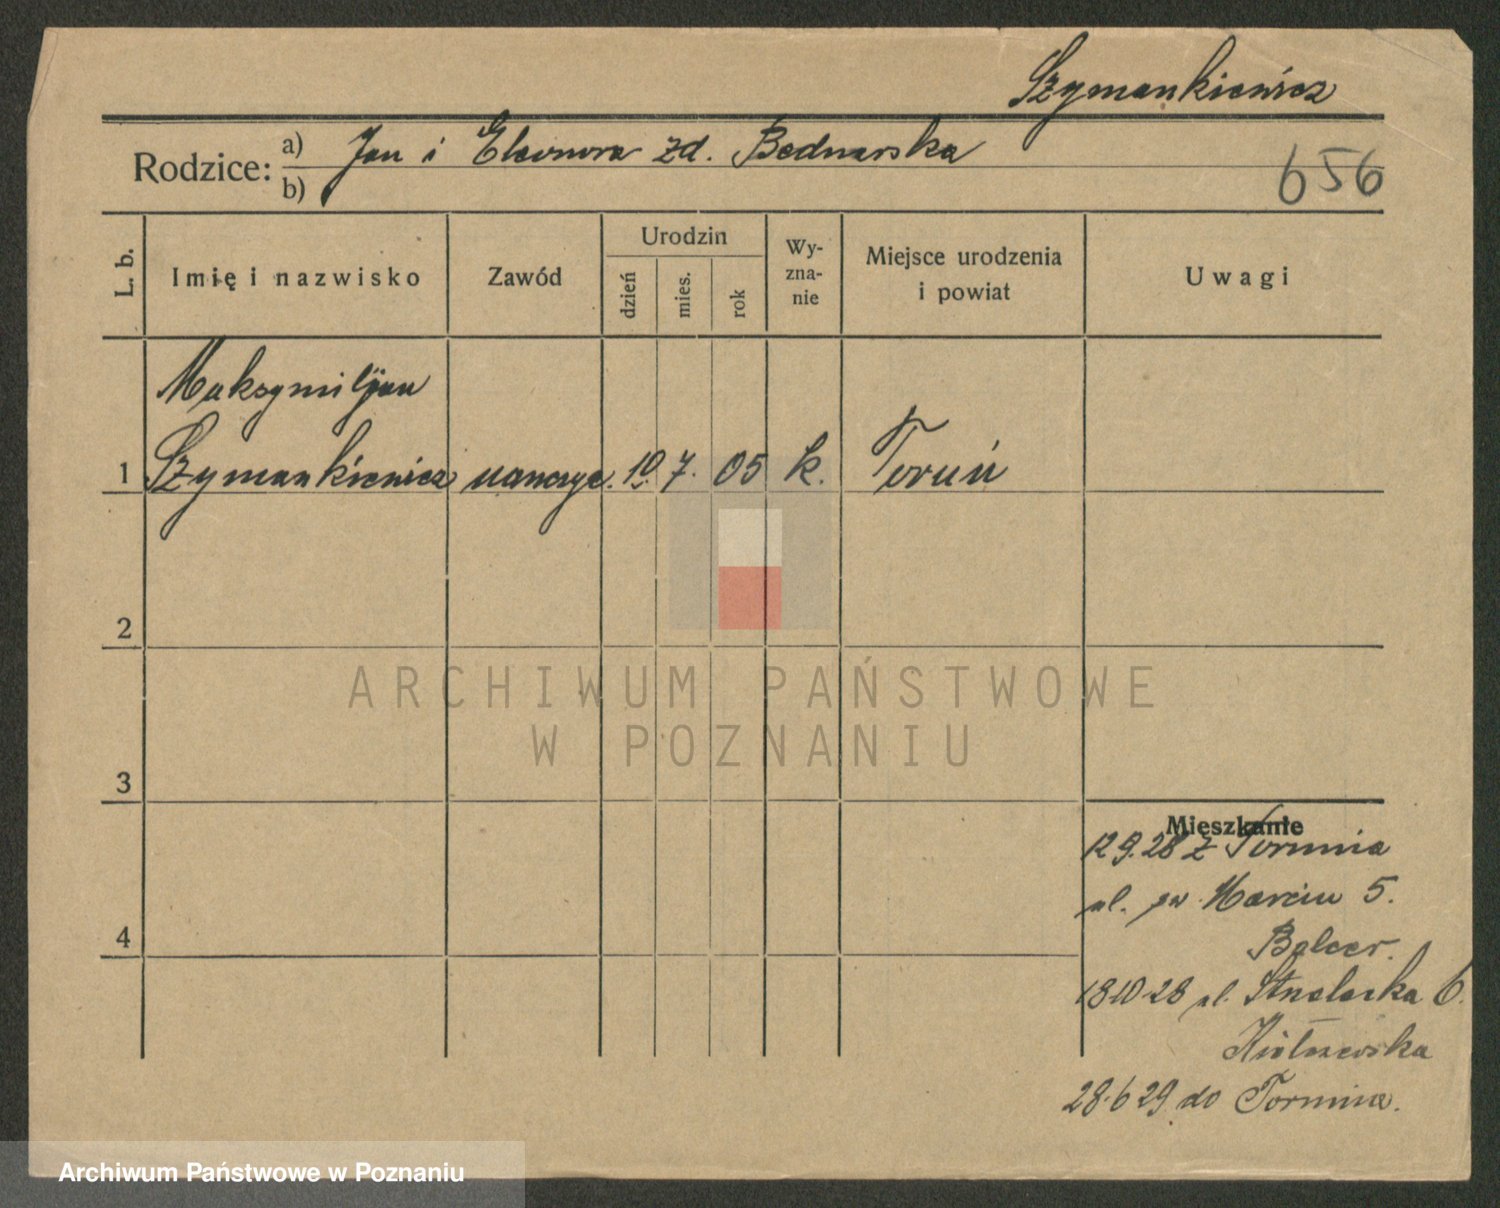 Szymankiewicz
Rodzice: a) Jan i Eleonora zd. Bednarska
b)
656
L. b.
Imię i nazwisko
Zawód
Urodzin
dzień
mies.
rok
Wy-
zna-
nie
Miejsce urodzenia
i powiat
Uwagi
Maksymiljan
1 Szymankiewicz nauczyc. 10. 7. 05 k. Toruń
2
3
4
ARCHIWUM PAŃSTWOWE
W POZNANIU
Mieszkanie
12 9. 28 z Torunia
ul. św Marcin 5.
Balcer.
18 10 28 ul. Strzelecka 6.
28. 6 29 do Torunia.
Archiwum Państwowe w Poznaniu